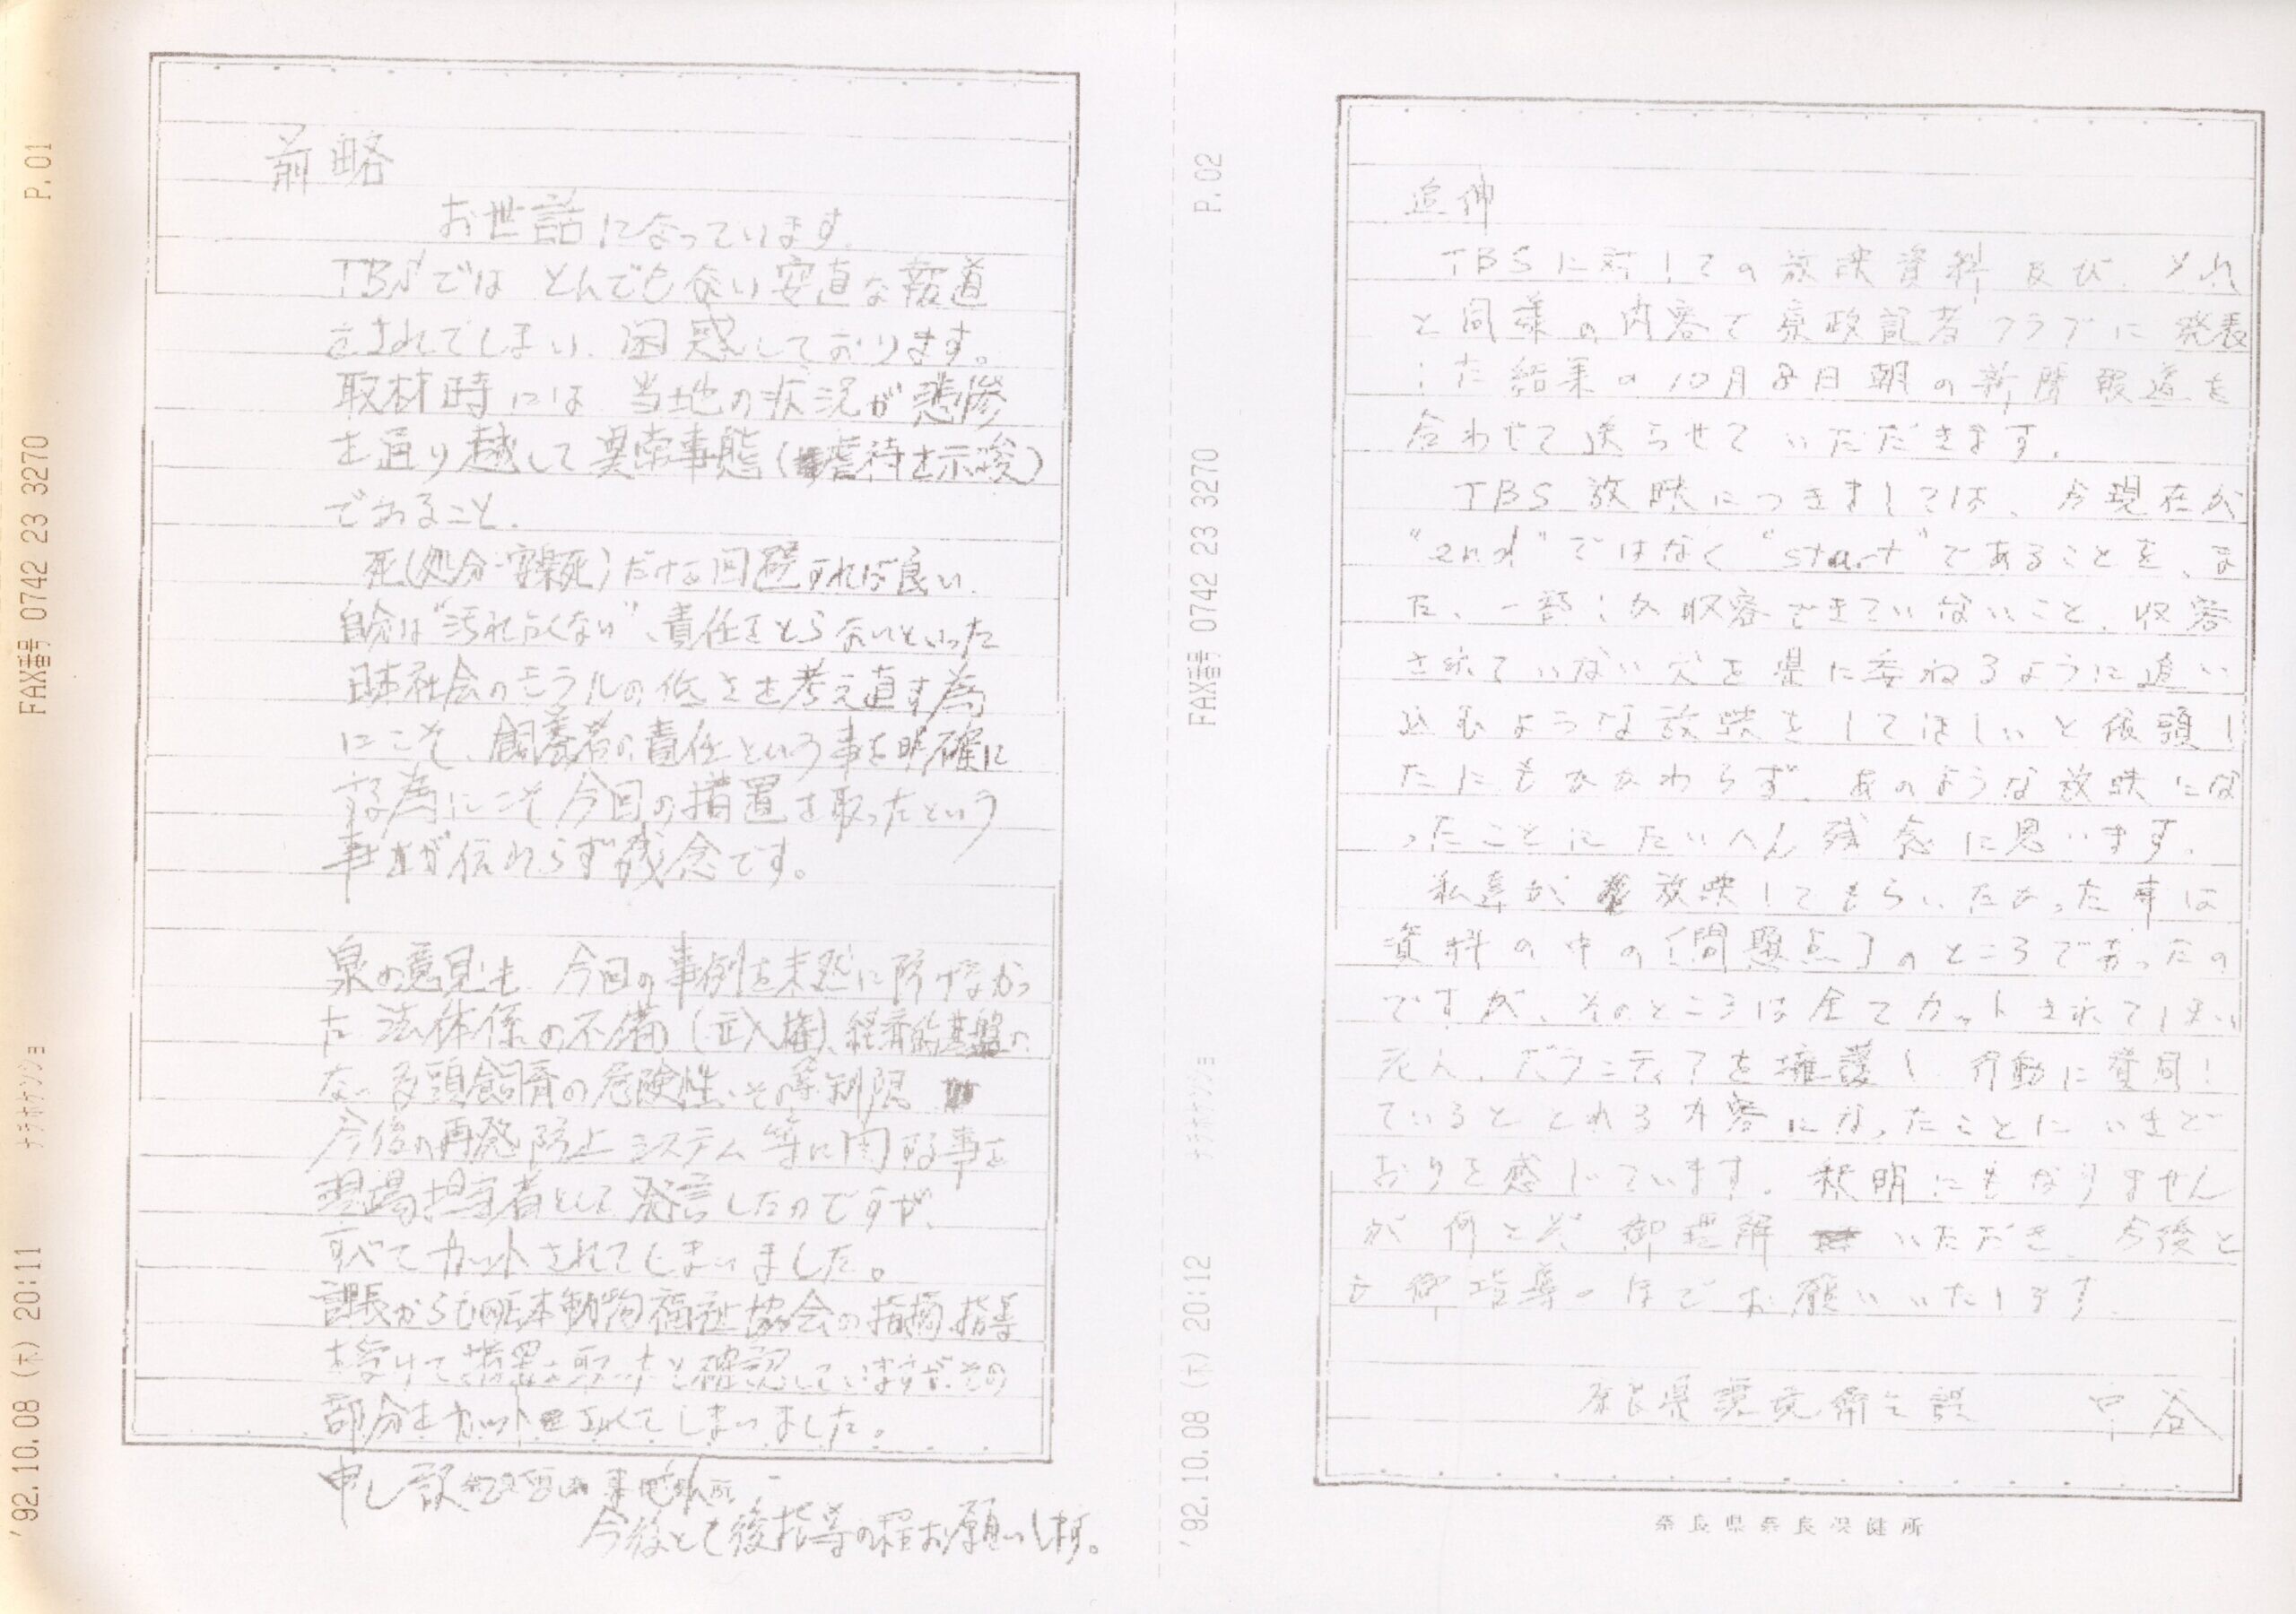 '92.10.08 (木) 20:11 ナラホケンジョ FAX番号 0742 23 3270 P.01
前略
お世話になっています。
TBSでは とんでもない安直な報道
をされてしまい、困惑しております。
取材時には 当地の状況が悲惨
を通り越して異常事態(虐待を示唆)
であること。
死(処分・安楽死)だけを回避すれば良い、
自分は"汚れたくない"、責任をとらないといった
日本社会のモラルの低さを考え直す為
にこそ、飼養者の責任という事を明確に
する為にこそ今回の措置を取ったという
事が伝わらず残念です。
県の意見も 今回の事例を未然に防げなかっ
た 法体係の不備(立入権)、経済的基盤の
ない多頭飼育の危険性、その制限
今後の再発防止システム等に関する事を
現場担当者として発言したのですが、
すべてカットされてしまいました。
課長からも日本動物福祉協会の指摘、指導
を受けて措置を取ったと確認していますが、その
部分もカットされてしまいました。
申し訳
今後とも御指導の程お願いします。
'92.10.08 (木) 20:12 ナラホケンジョ FAX番号 0742 23 3270 P.02
追伸
TBSに対しての放映資料及び、それ
と同様の内容で県政記者クラブに発表
した結果の10月8日朝の新聞報道を
合わせて送らせていただきます。
TBS放映につきましては、今現在が
"end"ではなく"start"であることを、ま
た、一部しか収容できていないこと、収容
されていない犬を県に委ねるように追い
込むような放映をしてほしいと依頼し
たにもかかわらず、あのような放映にな
ったことにたいへん残念に思います。
私達が 放映してもらいたかった事は
資料の中の[問題点]のところであったの
ですが、そのところは全てカットされてしまい
老人、ボランティアを擁護し、行動に賛同し
ているととれる内容になったことにいきど
おりを感じています。釈明にもなりません
が何とぞ御理解 いただき、今後と
も御指導のほどお願いいたします。
奈良県環境衛生課 中谷
奈良県奈良保健所